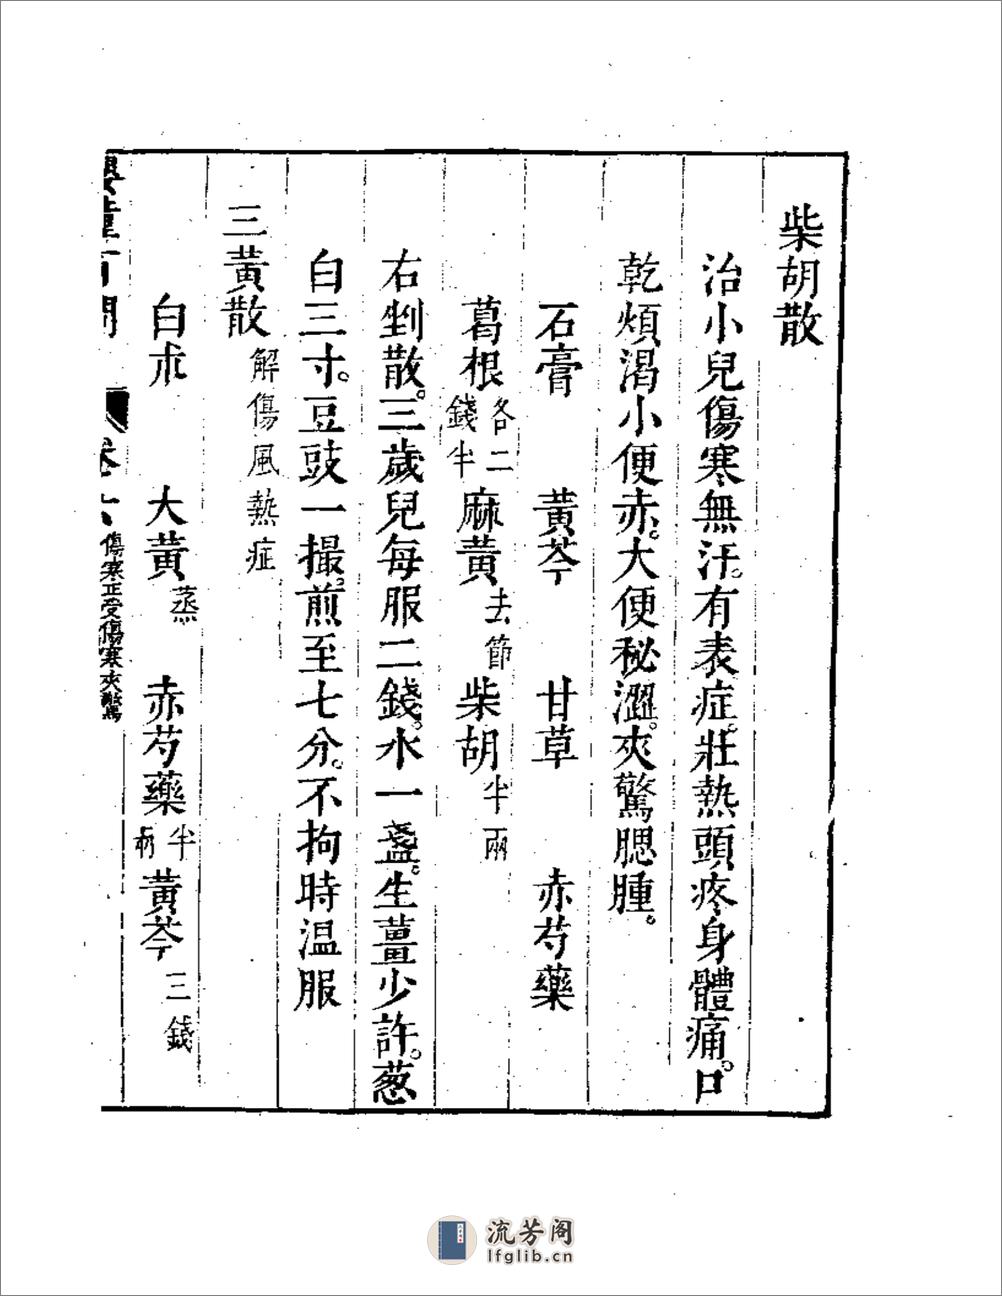 柴胡散
治小兒傷寒無汗。有表症。壯熱頭疼身體痛。口
乾煩渴小便赤。大便秘澀。夾驚腮腫。
石膏 黃芩 甘草 赤芍藥
葛根各二錢半 麻黃去節 柴胡半兩
右剉散。三歲兒每服二錢。水一盞。生薑少許。葱
白三寸。豆豉一撮。煎至七分。不拘時溫服
三黃散 解傷風熱症
白朮 大黃蒸 赤芍藥半兩 黃芩三錢
嬰童百問 卷六 傷寒正受傷寒夾驚
流芳阁
lfglib.cn